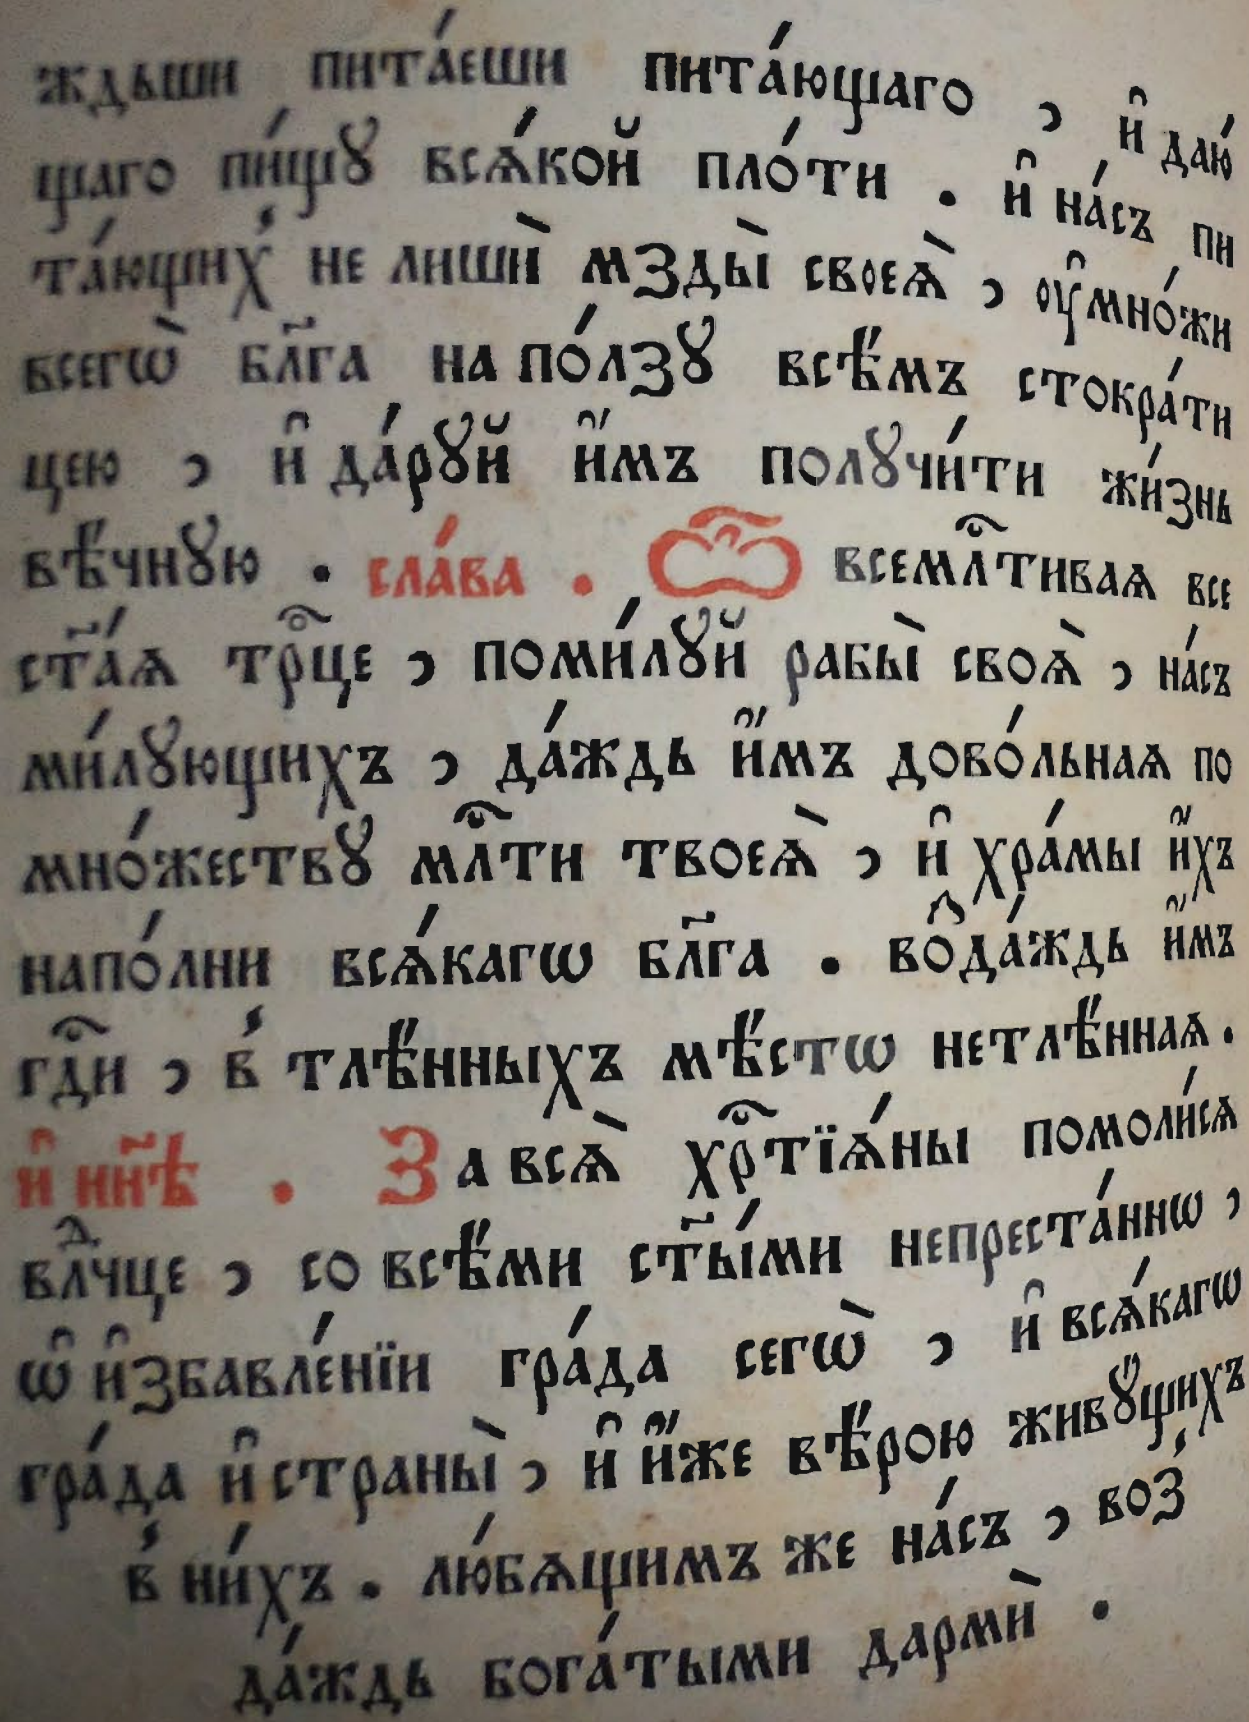 ждьши пита́еши пита́ющаго , и҆ даю́
щаго пи́щꙋ всѧ́кой пло́ти . и҆ на́съ пи
та́ющих̾ не лишѝ мзды̀ своеѧ̀ , ᲂу҆мно́жи
всегѡ̀ бл҃га на по́лзꙋ всѣ́мъ стокра́ти
цею , и҆ да́рꙋй и҆́мъ полꙋчи́ти жи́знь
вѣ́чнꙋю . сла́ва . Ѽ всемлⷭ҇тиваѧ все
ст҃а́ѧ трⷪ҇це , поми́лꙋй рабы̀ своѧ̀ , на́съ
ми́лꙋющихъ , да́ждь и҆́мъ дово́льнаѧ по
мно́жествꙋ млⷭ҇ти твоеѧ̀ , и҆ хра́мы и҆́хъ
напо́лни всѧ́кагѡ бл҃га . воз̑да́ждь и҆́мъ
гдⷭ҇и , в̾ тлѣ́нныхъ мѣ́стѡ нетлѣ́ннаѧ .
и҆ нн҃ѣ . За всѧ̀ хрⷭ҇тїѧ́ны помоли́сѧ
влⷣчце , со всѣ́ми ст҃ы́ми непреста́ннѡ ,
ѡ҆ и҆збавле́нїи гра́да сегѡ̀ , и҆ всѧ́кагѡ
гра́да и҆ страны̀ , и҆ и҆́же вѣ́рою живꙋ́щихъ
в̾ ни́хъ . лю́бѧщимъ же на́съ , воз̾
да́ждь бога́тыми дармѝ .